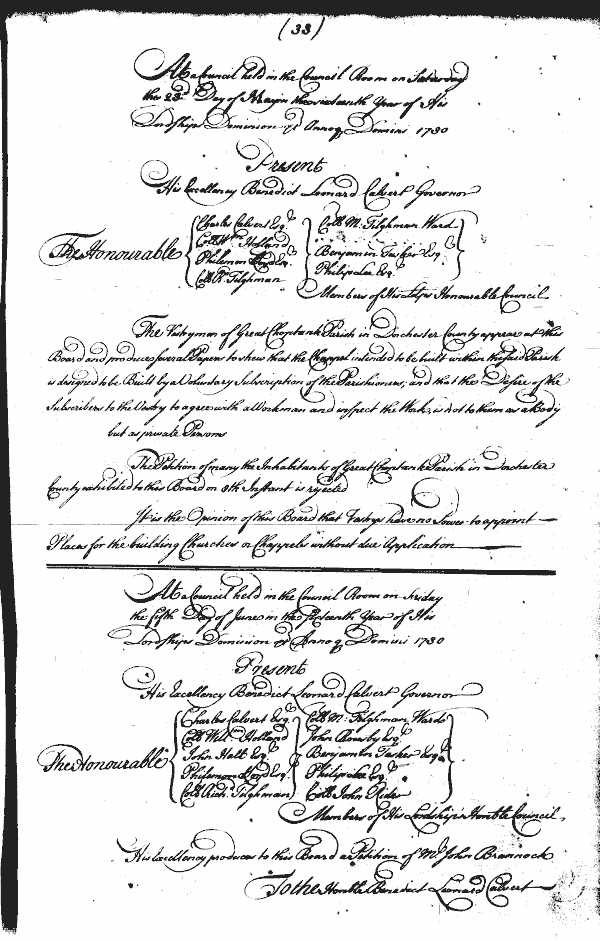 (33)
At a Council held in the Council Room on Saturday
the 23d Day of May in the sixteenth Year of His
Lordships Dominion &c Annoq Domini 1730
Present
His Excellency Benedict Leonard Calvert Governor
The Honourable
Charles Calvert Esqr
Collo Wm Holland
Philemon Lloyd Esqr
Collo Rd Tilghman
Collo M. Tilghman Ward
Benjamin Tasker Esqr
Philip Lee Esqr
Members of His Ldps Honourable Council
The Vestrymen of Great Choptank Parish in Dorchester County appear at this
Board and produce several Papers to shew that the Chappel intended to be built within the said Parish
is designed to be Built by a Voluntary Subscription of the Parishioners, and that the Desire of the
Subscribers to the Vestry to agree with a Workman and inspect the Work, is not to them as a Body
but as private Persons
The Petition of many the Inhabitants of Great Choptank Parish in Dorchester
County exhibited to this Board on 8th Instant is rejected
It is the Opinion of this Board that Vestrys have no Power to appoint
Places for the building Churches or Chappels without due Application
At a Council held in the Council Room on Friday
the fifth Day of June in the sixteenth Year of His
Lordships Dominion &c Annoq Domini 1730
Present
His Excellency Benedict Leonard Calvert Governor
The Honourable
Charles Calvert Esqr
Collo Willm Holland
John Hall Esqr
Philemon Lloyd Esqr
Collo Richd Tilghman
Collo M. Tilghman Ward
John Rousby Esqr
Benjamin Tasker Esqr
Philip Lee Esqr
Collo John Rider
Members of His Lordship's Honble Council
His Excellency produces to this Board a Petition of Mr John Brannock
To the Honble Benedict Leonard Calvert